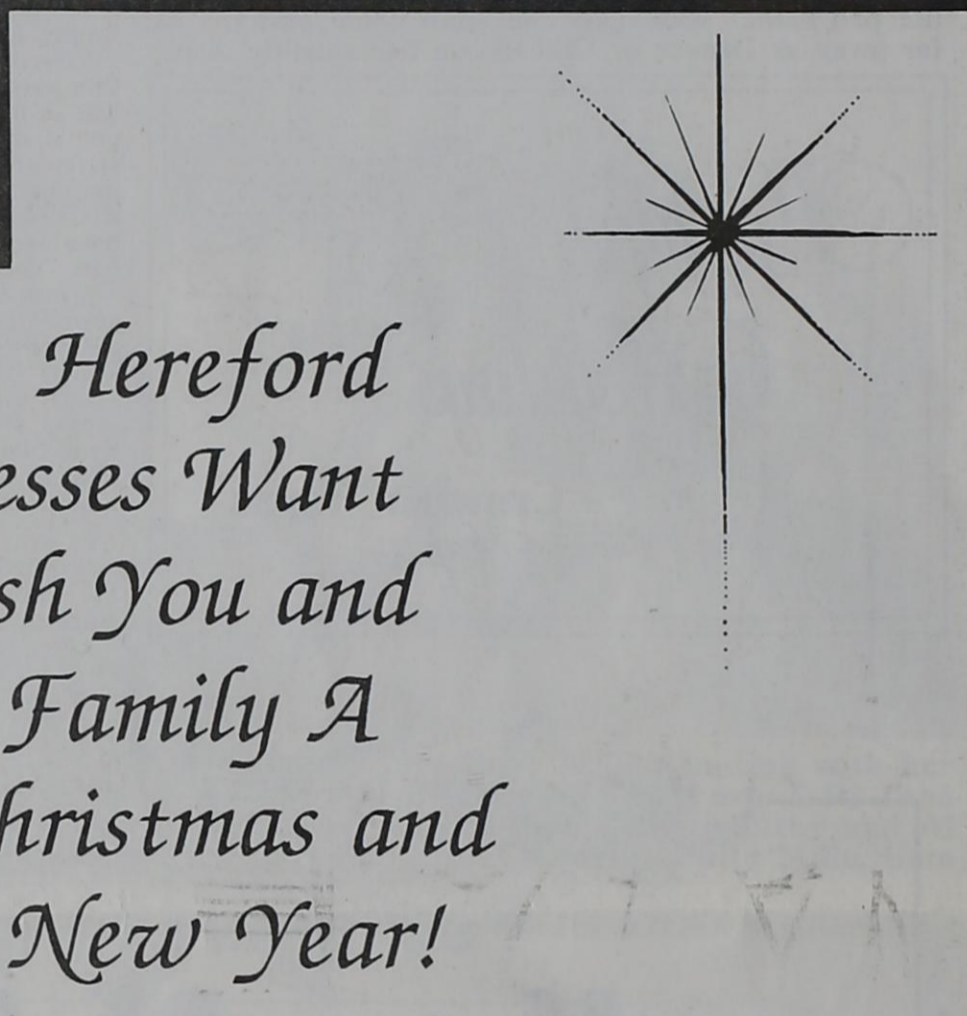 Hereford
esses Want
sh You and
Family A
hristmas and
New Year!